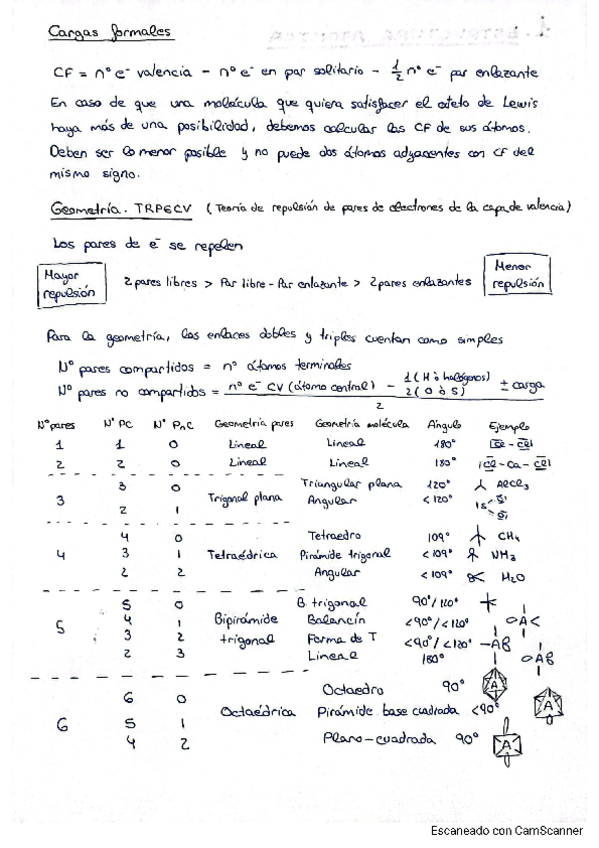 Cargas formales
CF = nº e⁻ valencia - nº e⁻ en par solitario - 1/2 nº e⁻ par enlazante
En caso de que una molécula que quiera satisfacer el octeto de Lewis
haya más de una posibilidad, debemos calcular las CF de sus átomos.
Deben ser lo menor posible y no puede dos átomos adyacentes con CF del
mismo signo.
Geometría. TRPECV (Teoría de repulsión de pares de electrones de la capa de valencia)
Los pares de e⁻ se repelen
Mayor repulsión 2 pares libres > Par libre - Par enlazante > 2 pares enlazantes Menor repulsión
Para la geometría, los enlaces dobles y triples cuentan como simples
Nº pares compartidos = nº átomos terminales
Nº pares no compartidos = nº e⁻ CV (átomo central) - 1 (H o halógenos) 2 (O o S) ± carga
2
Nº pares Nº PC Nº PnC Geometría pares Geometría molécula Ángulo Ejemplo
1 1 0 Lineal Lineal 180° |Cl - Cl|
2 2 0 Lineal Lineal 180° |Cl - Ca - Cl|
3 0 Triangular plana 120° AlCl₃
3 Trigonal plana
2 1 Angular < 120°
4 0 Tetaedro 109° CH₄
4 3 1 Tetraédrica Pirámide trigonal < 109° NH₃
2 2 Angular < 109° H₂O
5 0 B. trigonal 90°/120°
5 4 1 Bipirámide Balancín < 90°/< 120° A
3 2 trigonal Forma de T < 90°/< 120°
2 3 Lineal 180°
6 0 Octaedro 90° A
6 5 1 Octaédrica Pirámide base cuadrada < 90° A
4 2 Plano-cuadrada 90° A
Escaneado con CamScanner